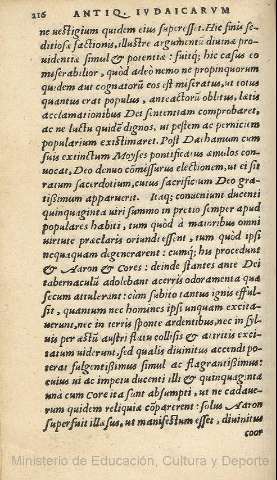 216 ANTIQ. IVDAICARVM
ne uestigium quidem eius superesset. Hic finis se-
ditiosæ factionis, illustre argumentũ diuinæ pro-
uidentiæ simul & potentiæ: fuitq; hic casus eo
miserabilior, quòd adeò nemo ne propinquorum
quidem aut cognatorũ eos est miseratus, ut totus
quantus erat populus, anteactorũ oblitus, lætis
acclamationibus Dei sententiam comprobaret,
ac ne luctu quidẽ dignos, ut pestem ac perniciem
popularium existimaret. Post Dathamum cum
suis extinctum Moyses pontificatus æmulos con-
uocat, Deo denuo cõmissurus electionem, ut ei sit
ratum sacerdotium, cuius sacrificium Deo gra-
tissimum apparuerit. Itaq; conueniunt ducenti
quinquaginta uiri summo in pretio semper apud
populares habiti, tum quòd à maioribus omni
uirtute præclaris oriundi essent, tum quòd ipsi
nequaquam degenerarent: cumq; his procedunt
& Aaron & Cores: deinde stantes ante Dei
tabernaculũ adolebant acerris odoramenta quæ
secum attulerant: cùm subito tantus ignis efful-
sit, quantum nec homines ipsi unquam excita-
uerunt, nec in terris sponte ardentibus, nec in syl-
uis per æstũ austri flatu collisis & attritis exci-
tatum uiderunt, sed qualis diuinitus accendi po-
terat fulgentissimus simul ac flagrantissimus:
cuius ui ac impetu ducenti illi & quinquaginta
una cum Core ita sunt absumpti, ut ne cadaue-
rum quidem reliquiæ cõparerent: solus Aaron
superfuit illæsus, ut manifestum esset, diuinitus
coor
Ministerio de Educación, Cultura y Deporte